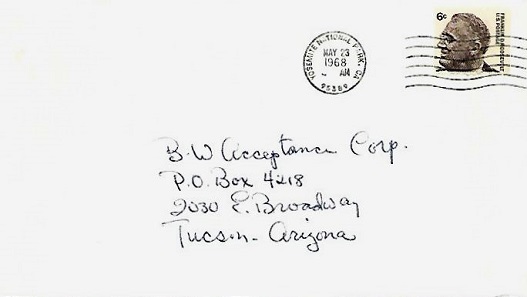 6¢
FRANKLIN D. ROOSEVELT
U.S. POSTAGE
YOSEMITE NATIONAL PARK, CA
MAY 23
1968
AM
95389
B.W Acceptance Corp.
P.O. Box 4218
2030 E. Broadway
Tucson - Arizona